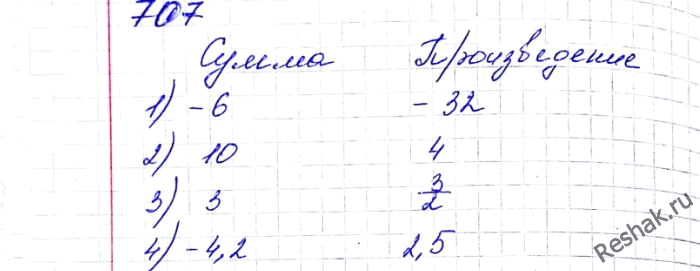 707
Сумма Произведение
1) -6 -32
2) 10 4
3) 3 3/2
4) -4,2 2,5
Reshak.ru